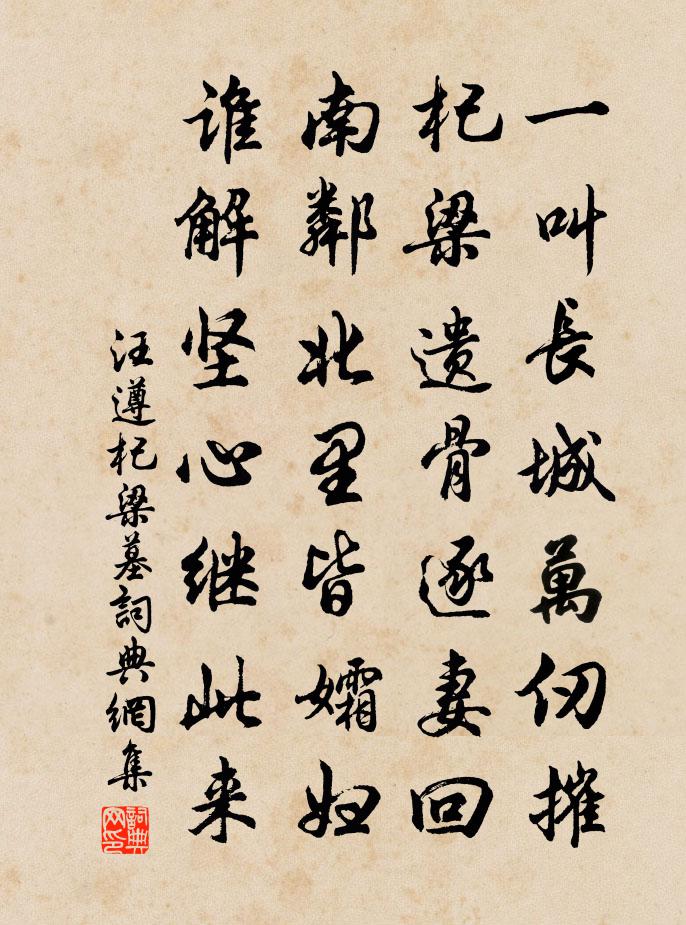 一叫長城萬仞摧
杞梁遗骨逐妻回
南鄰北里皆孀妇
谁解坚心继此来
汪遵杞梁墓詞典網集
詞典网印